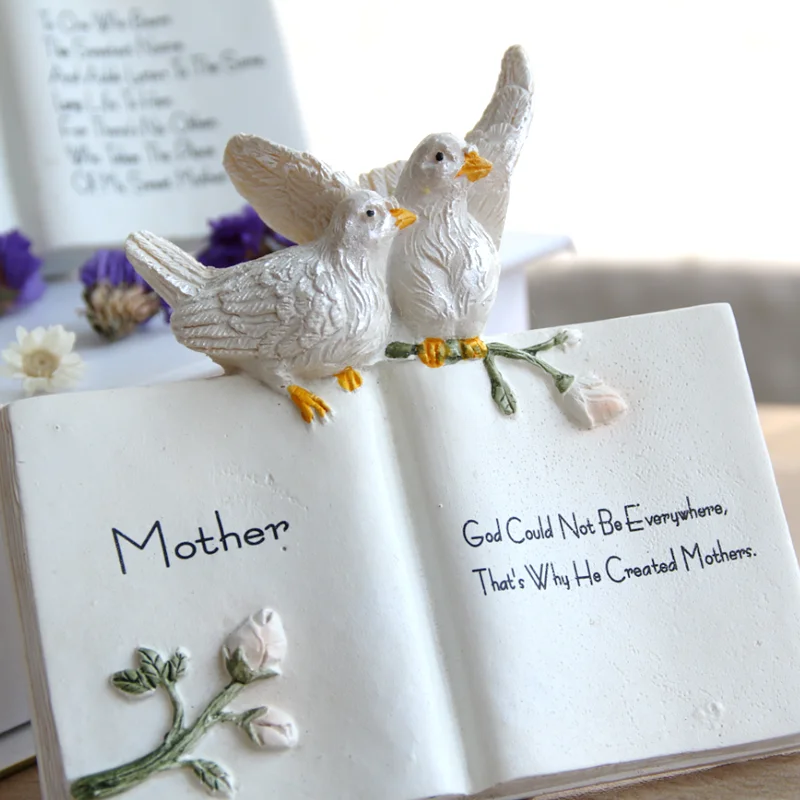 To One Who Bears
The Sweetest Name
And Adds Luster To The Same
Long Life To Her
For There's No Other
Who Takes The Place
Of My Sweet Mother
Mother
God Could Not Be Everywhere,
That's Why He Created Mothers.